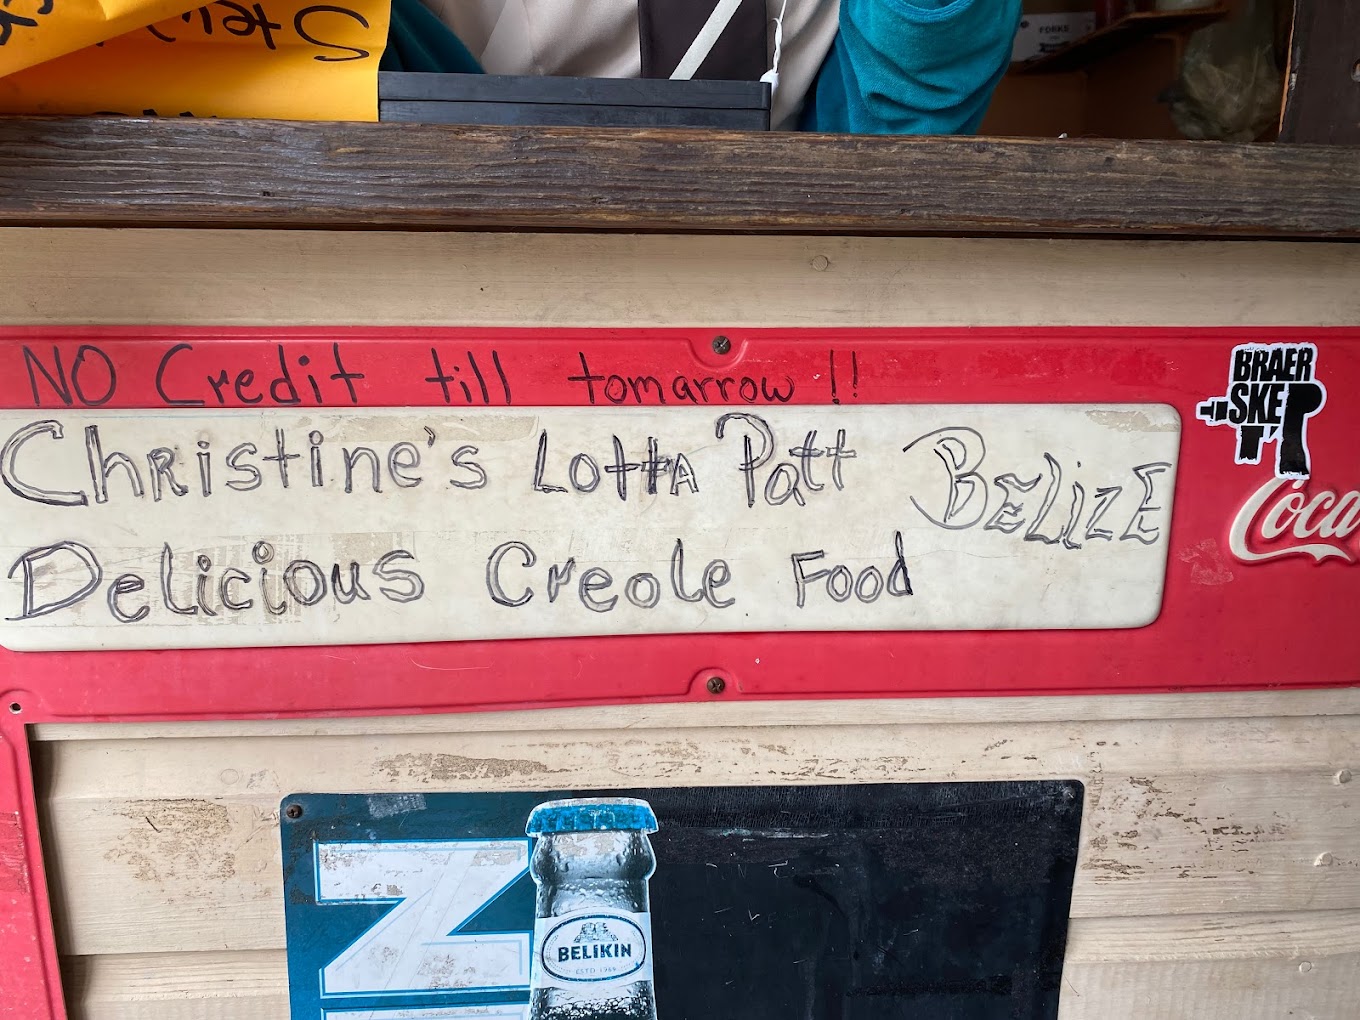 FORKS
NO Credit till tomarrow !!
Christine's Lotta Patt BELizE
Delicious Creole Food
BRAER
SKE
Coca
BELIKIN
ESTD 1969